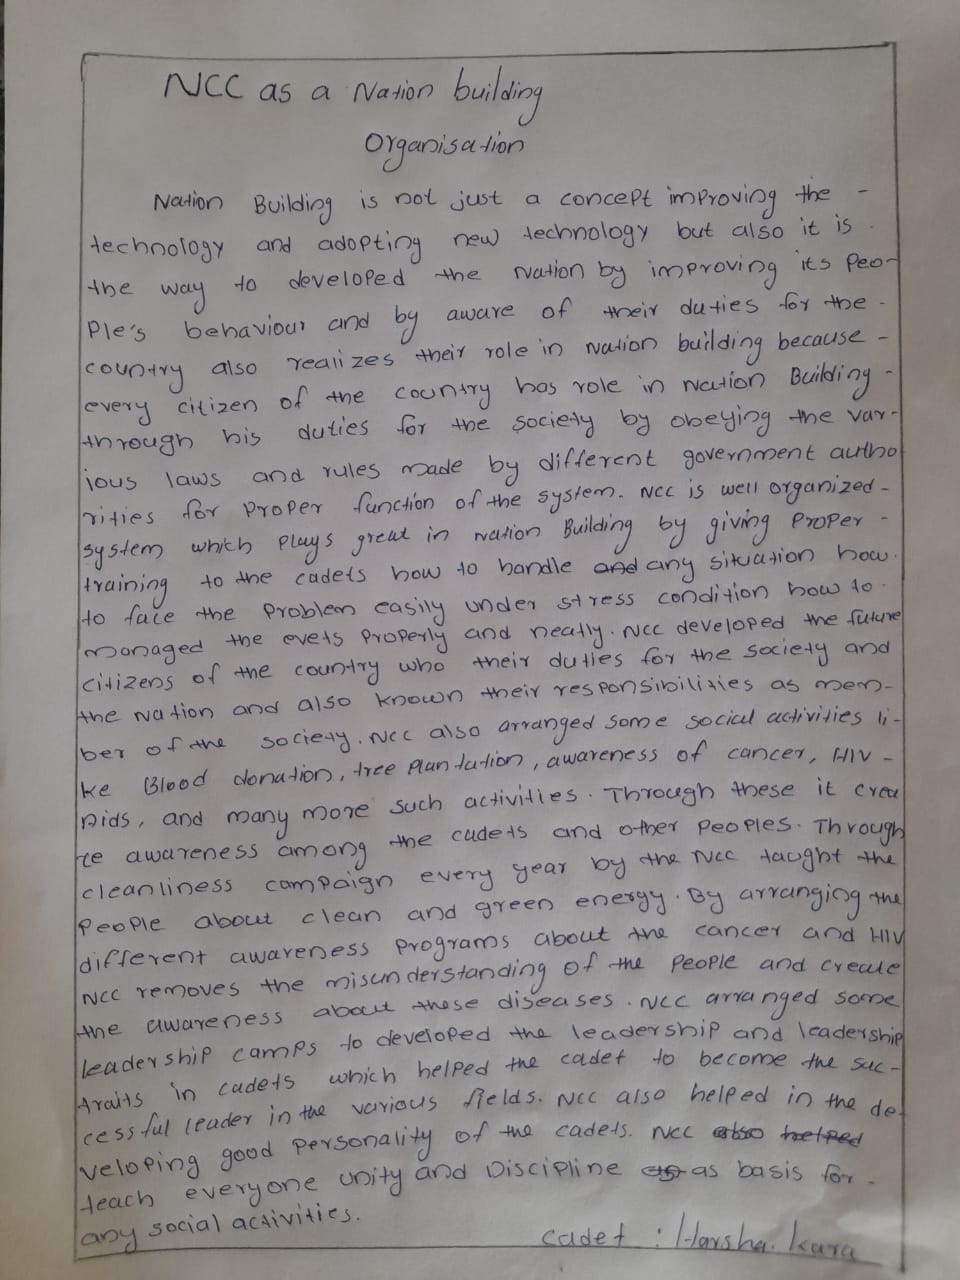 NCC as a Nation building
Organisation
Nation Building is not just a concept improving the -
technology and adopting new technology but also it is
the way to developed the Nation by improving its Peo-
Ple's behaviour and by aware of their duties for the -
country also realizes their role in Nation building because -
every citizen of the country has role in Nation Building -
through his duties for the society by obeying the var-
ious laws and rules made by different government autho
rities for Proper function of the system. NCC is well organized -
system which Plays great in Nation Building by giving Proper -
training to the cadets how to handle and any situation how
to face the Problem easily under stress condition how to
managed the evets Properly and neatly. NCC developed the future
citizens of the country who their duties for the society and
the Nation and also known their responsibilities as mem-
ber of the society. NCC also arranged some social activities li-
ke Blood donation, tree Plantation, awareness of cancer, HIV -
Aids, and many more such activities. Through these it crea
te awareness among the cadets and other Peoples. Through
cleanliness campaign every year by the NCC taught the
People about clean and green energy. By arranging the
different awareness Programs about the cancer and HIV
NCC removes the misunderstanding of the People and create
the awareness about these diseases. NCC arranged some
leadership camps to developed the leadership and leadership
traits in cadets which helped the cadet to become the suc-
cessful leader in the various fields. NCC also helped in the de-
veloping good Personality of the cadets. NCC also helped
teach everyone unity and Discipline as basis for -
any social activities.
cadet : Harsha.